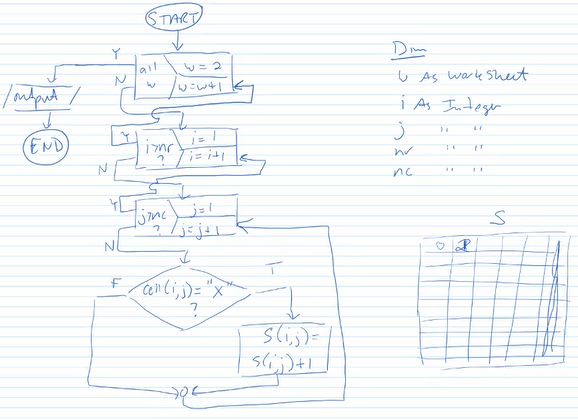 START
Y
N
all
w
w=2
w=w+1
output
END
Y
i>nr
?
i=1
i=i+1
N
Y
j>nc
?
j=1
j=j+1
N
F
cell(i,j)="X"
?
T
S(i,j)=
S(i,j)+1
Dim
w As Worksheet
i As Integer
j " "
nr " "
nc " "
S
0